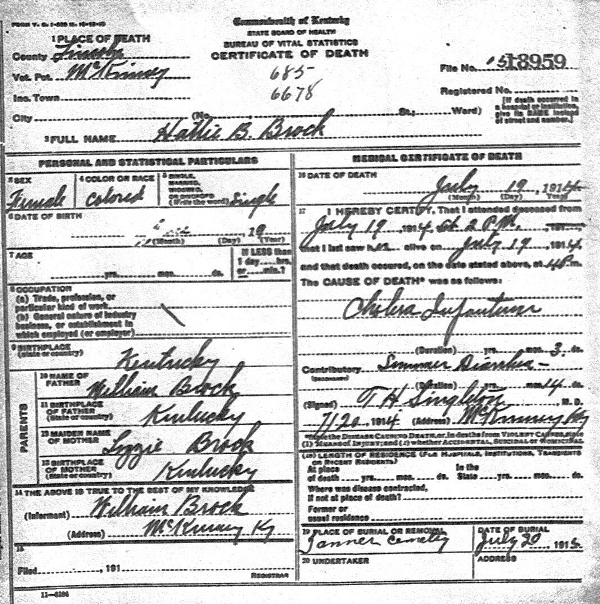 FORM V. S.
Commonwealth of Kentucky
STATE BOARD OF HEALTH
BUREAU OF VITAL STATISTICS
CERTIFICATE OF DEATH
1 PLACE OF DEATH
County Lincoln
Vot. Pct. McKinney
Inc. Town
City
(No. St.; Ward)
685
6678
File No. 18959
Registered No.
[If death occurred in
a hospital or institution
give its NAME instead
of street and number.]
2 FULL NAME Hattie B. Brock
PERSONAL AND STATISTICAL PARTICULARS
3 SEX
Female
4 COLOR OR RACE
colored
5 SINGLE,
MARRIED,
WIDOWED,
OR DIVORCED
(Write the word) Single
6 DATE OF BIRTH
19
(Month) (Day) (Year)
7 AGE
yrs. mos. ds.
If LESS than
1 day hrs.
or min.?
8 OCCUPATION
(a) Trade, profession, or
particular kind of work
(b) General nature of industry
business, or establishment in
which employed (or employer)
9 BIRTHPLACE
(State or country) Kentucky
PARENTS
10 NAME OF
FATHER William Brock
11 BIRTHPLACE
OF FATHER
(State or country) Kentucky
12 MAIDEN NAME
OF MOTHER Lizzie Brock
13 BIRTHPLACE
OF MOTHER
(State or country) Kentucky
14 THE ABOVE IS TRUE TO THE BEST OF MY KNOWLEDGE
(Informant) William Brock
(Address) McKinney Ky
15
Filed 191
REGISTRAR
11-6184
MEDICAL CERTIFICATE OF DEATH
16 DATE OF DEATH
July 19, 1914
(Month) (Day) (Year)
17 I HEREBY CERTIFY, That I attended deceased from
July 19, 1914 at 2 P.M., 191
that I last saw her alive on July 19, 1914
and that death occured, on the date stated above, at 4 P m.
The CAUSE OF DEATH* was as follows:
Cholera Infantum
(Duration) yrs. mos. 3 ds.
Contributory Summer Diarrhea
(SECONDARY)
(Duration) yrs. mos. 14 ds.
(Signed) T H Singleton M. D.
7/20, 1914 (Address) McKinney Ky
*State the DISEASE CAUSING DEATH, or, in deaths from VIOLENT CAUSES, state
(1) MEANS OF INJURY; and (2) whether ACCIDENTAL, SUICIDAL or HOMICIDAL.
18 LENGTH OF RESIDENCE (FOR HOSPITALS, INSTITUTIONS, TRANSIENTS
OR RECENT RESIDENTS)
At place
of death yrs. mos. ds.
In the
State yrs. mos. ds.
Where was disease contracted,
if not at place of death?
Former or
usual residence
19 PLACE OF BURIAL OR REMOVAL
Tanner Cemetery
DATE OF BURIAL
July 20 191
20 UNDERTAKER
ADDRESS